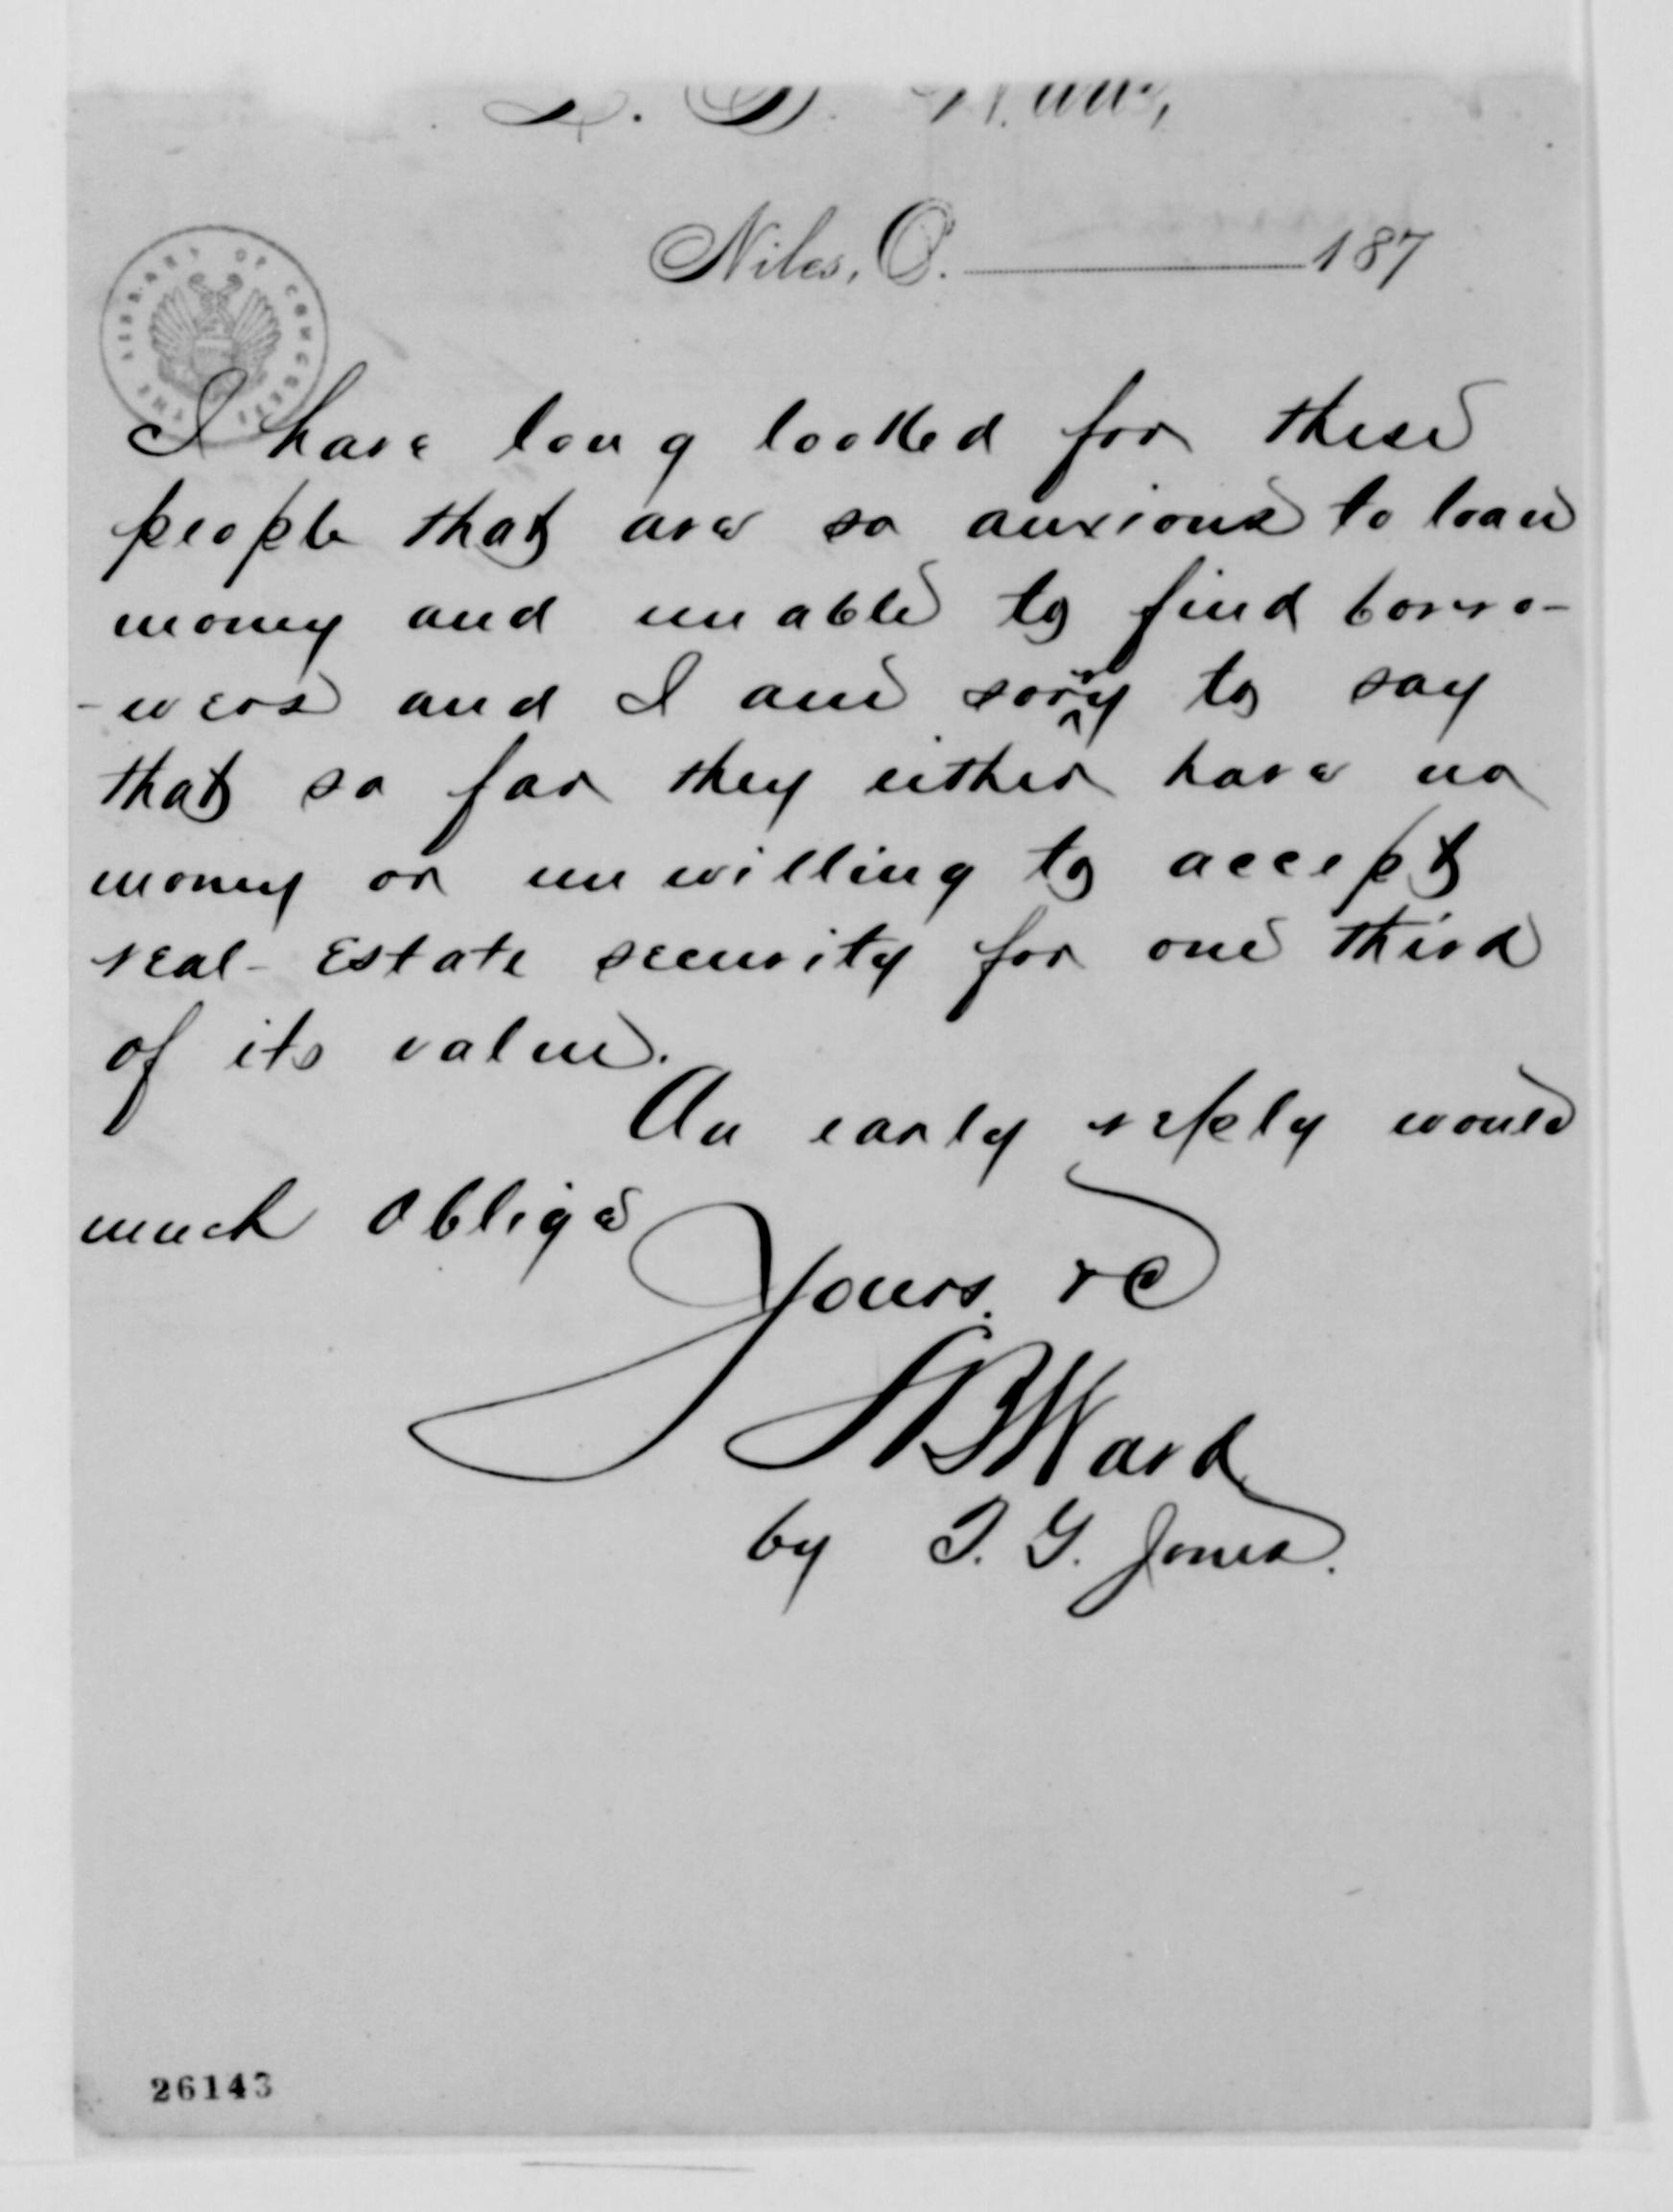 Niles, O. 187
THE LIBRARY OF CONGRESS
I have long looked for these
people that are so anxious to loan
money and unable to find borro-
-wers and I am sorry to say
that so far they either have no
money or unwilling to accept
real-Estate security for one third
of its value.
An early reply would
much oblige
Yours &c
B Ward
by T. G. Jones.
26143